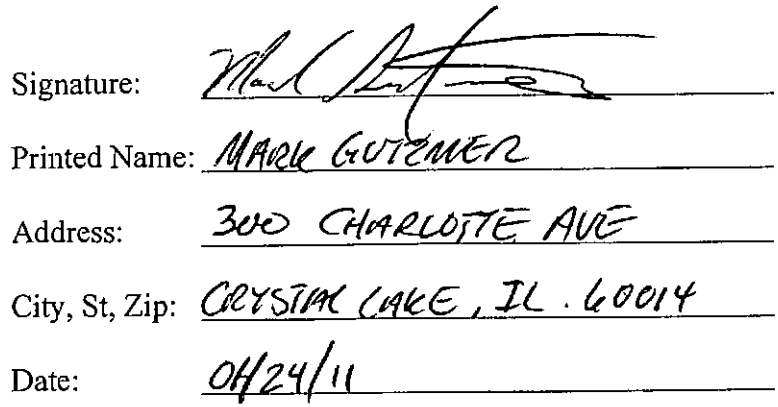 Signature: Mark Gutzmer
Printed Name: MARK GUTZMER
Address: 300 CHARLOTTE AVE
City, St, Zip: CRYSTAL LAKE, IL. 60014
Date: 04/24/11